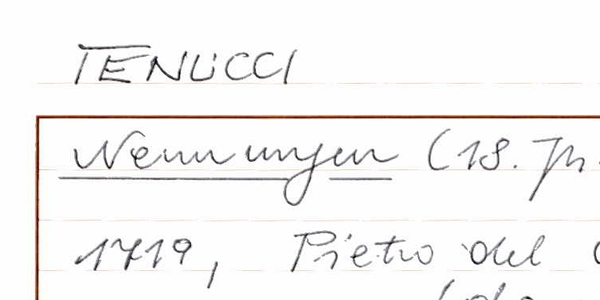 TENUCCI
Nennungen (18. Jh.
1719, Pietro del